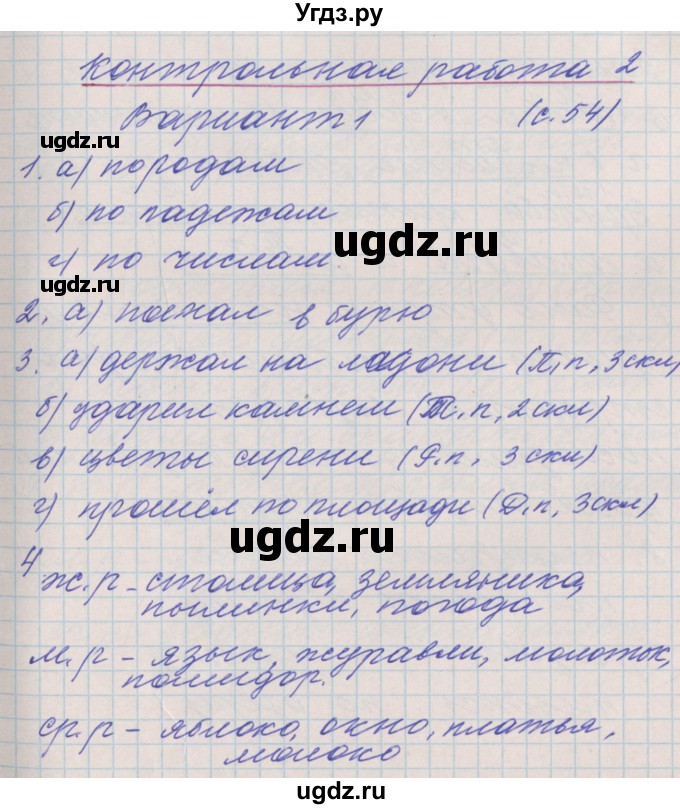 Угдз.ру
Контрольная работа 2
Вариант 1 (с. 54)
ugdz.ru
1. а) породам
б) по падежам
ugdz.ru
г) по числам
ugdz.ru
2. а) поехал в бурю
3. а) держал на ладони (П.п, 3 скл)
б) ударил камнем (Т.п, 2 скл)
ugdz.ru
в) цветы сирени (Р.п, 3 скл)
г) прошёл по площади (Д.п, 3 скл)
ugdz.ru
4
ж.р - столица, земляника,
пылинки, погода
м.р - язык, журавли, молоток,
помидор.
ugdz.ru
ср.р - яблоко, окно, платья,
молоко
ugdz.ru